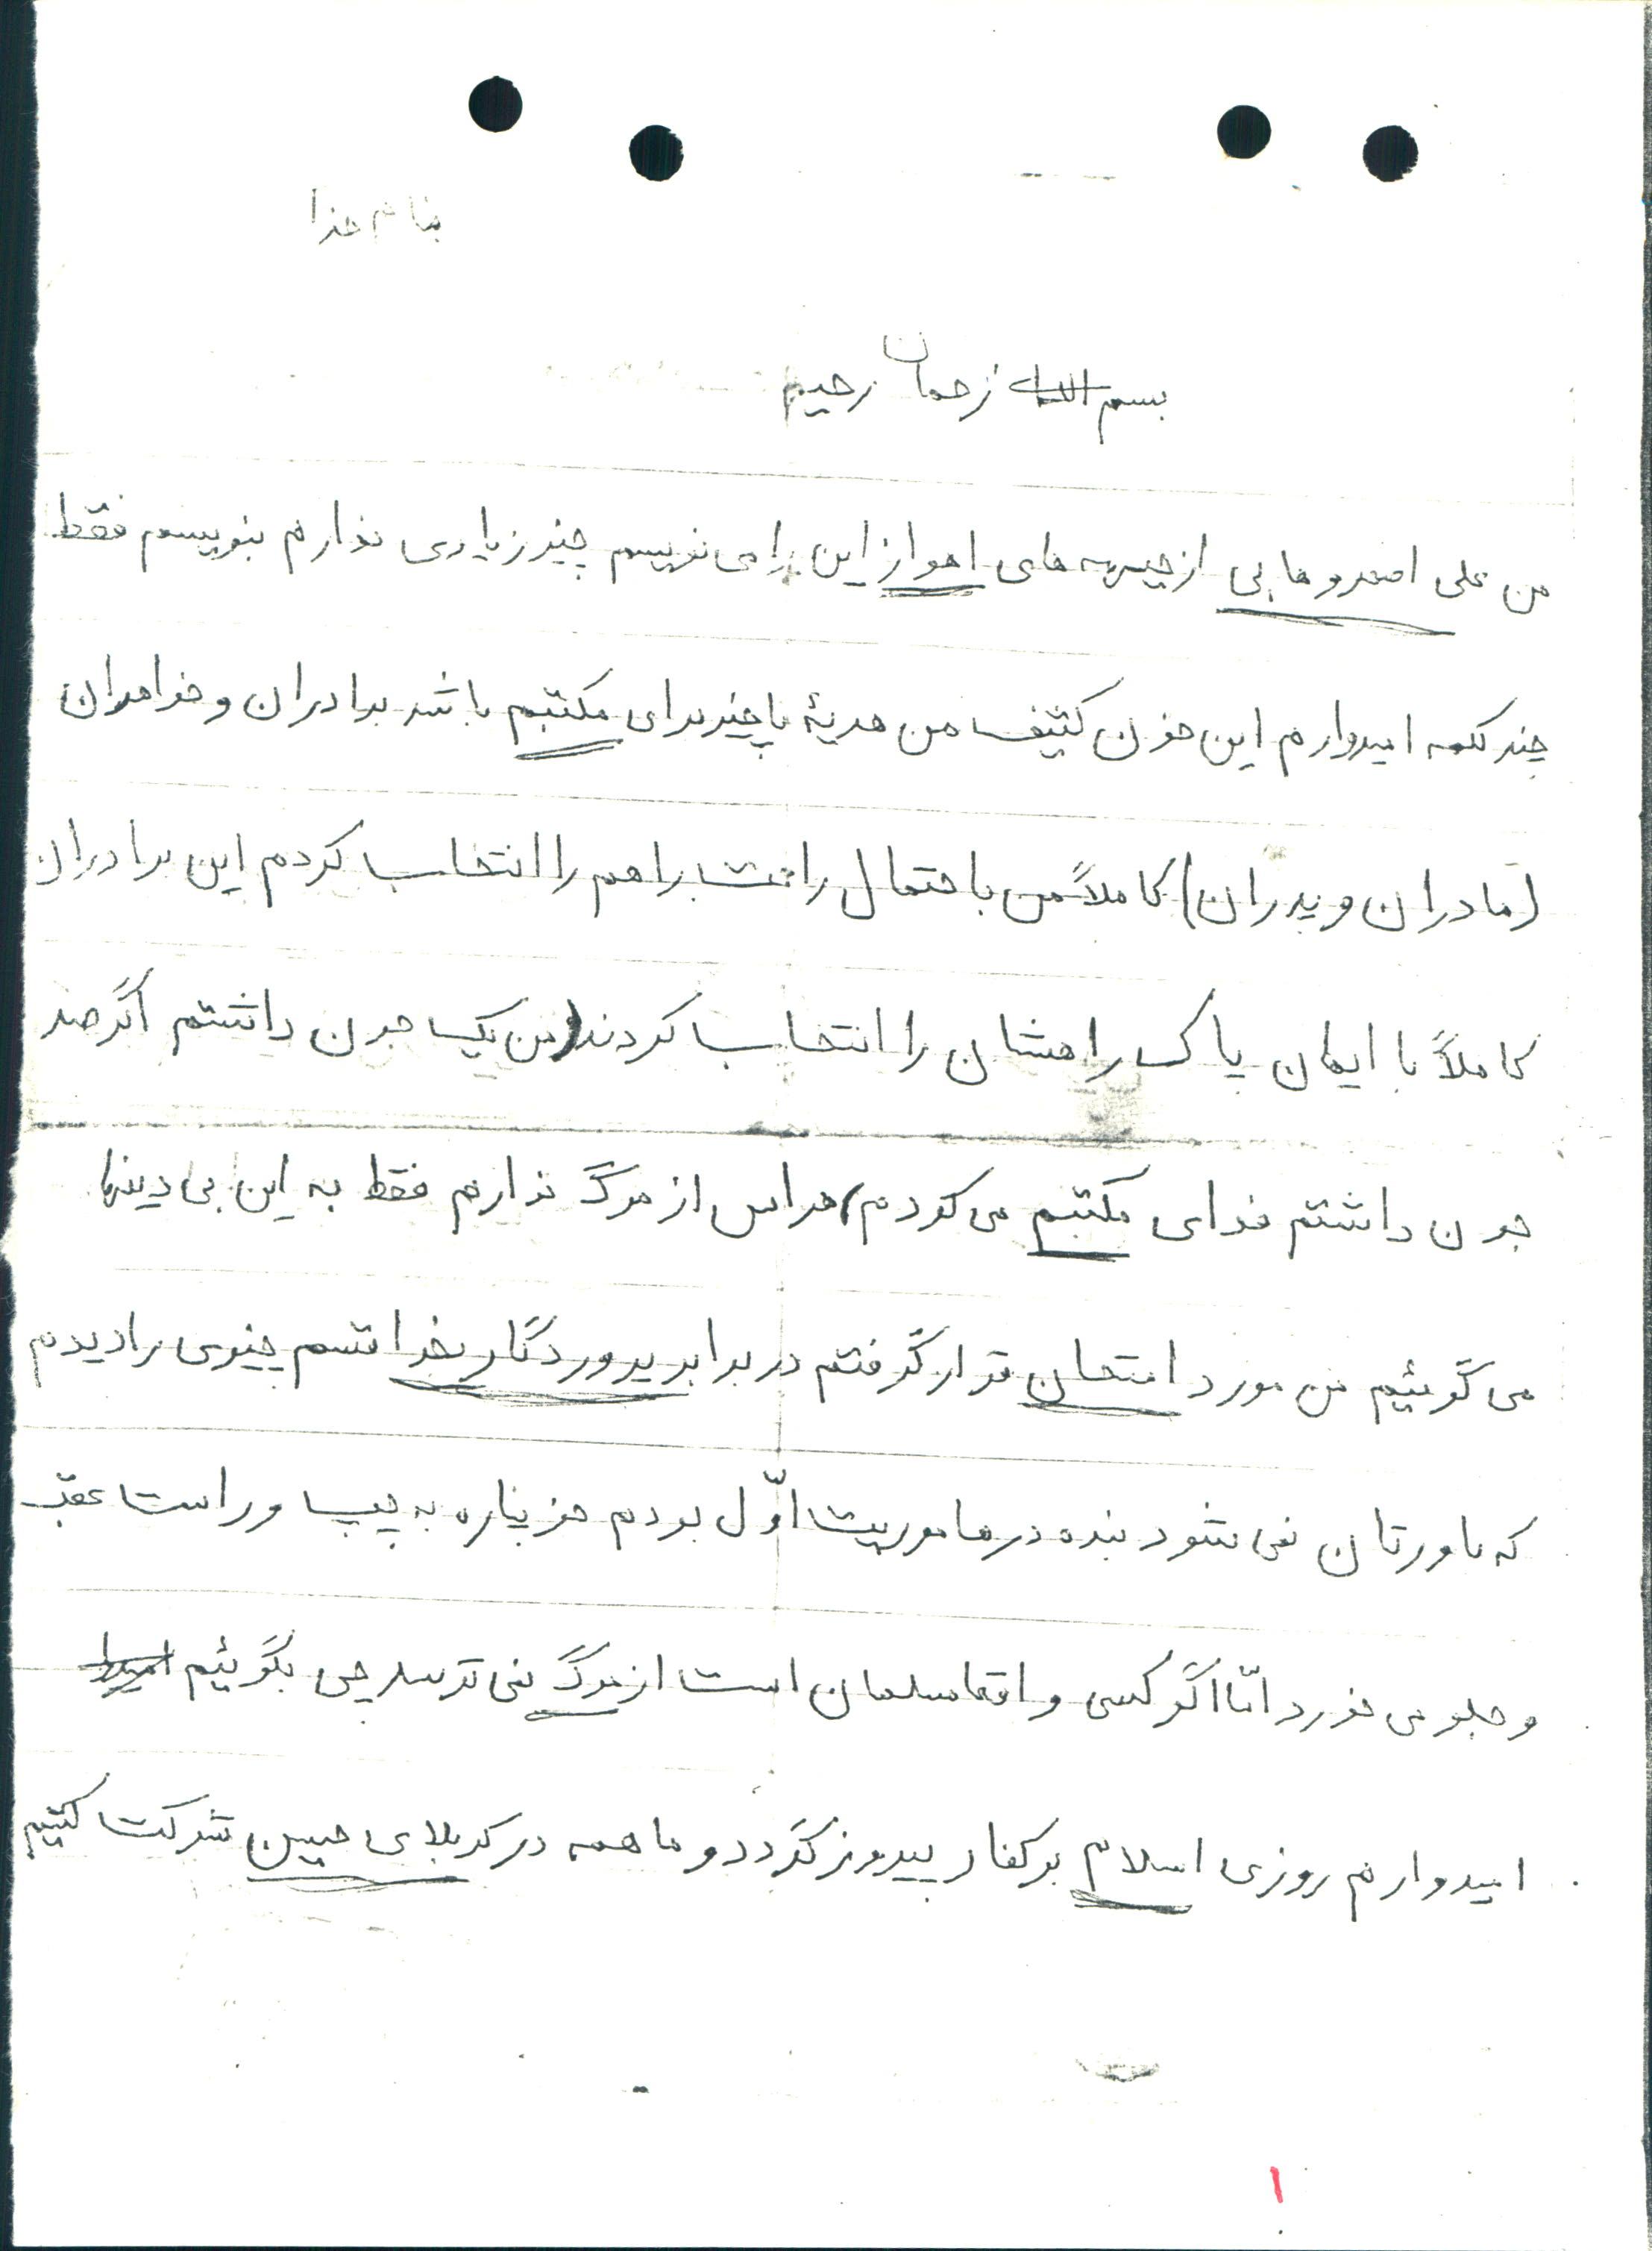 بنام خدا
بسم الله رحمان رحیم
من علی اصغر وهابی از جبهه های اهواز این را می نویسم چیز زیادی ندارم بنویسم فقط
چند کلمه امیدوارم این خون کثیف من هدیهٔ ناچیز برای مکتبم باشد برادران و خواهران
(مادران و پدران) کاملاً من باحتمال راحت راهم را انتخاب کردم این برادران
کاملاً با ایمان پاک راهشان را انتخاب کردند (من یک جون داشتم اگر صد
جون داشتم فدای مکتبم می کردم) هراس از مرگ ندارم فقط به این بی دینها
می گوئیم من مورد امتحان قرار گرفتم در برابر پروردگار بخدا قسم چیزی را دیدم
که باورتان نمی شود بنده در ماموریت اوّل بودم خمپاره به چپ و راست عقب
و جلو می خورد امّا اگر کسی واقعا مسلمان است از مرگ نمی ترسد چی بگوئیم
امیدوارم روزی اسلام بر کفار پیروز گردد و ما همه در کربلای حسین شرکت کنیم
۱